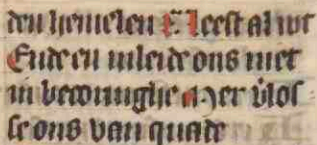 den hemelen leest al uut
Ende en inleide ons niet
in becoringhe Mer v̄los
se ons van quade